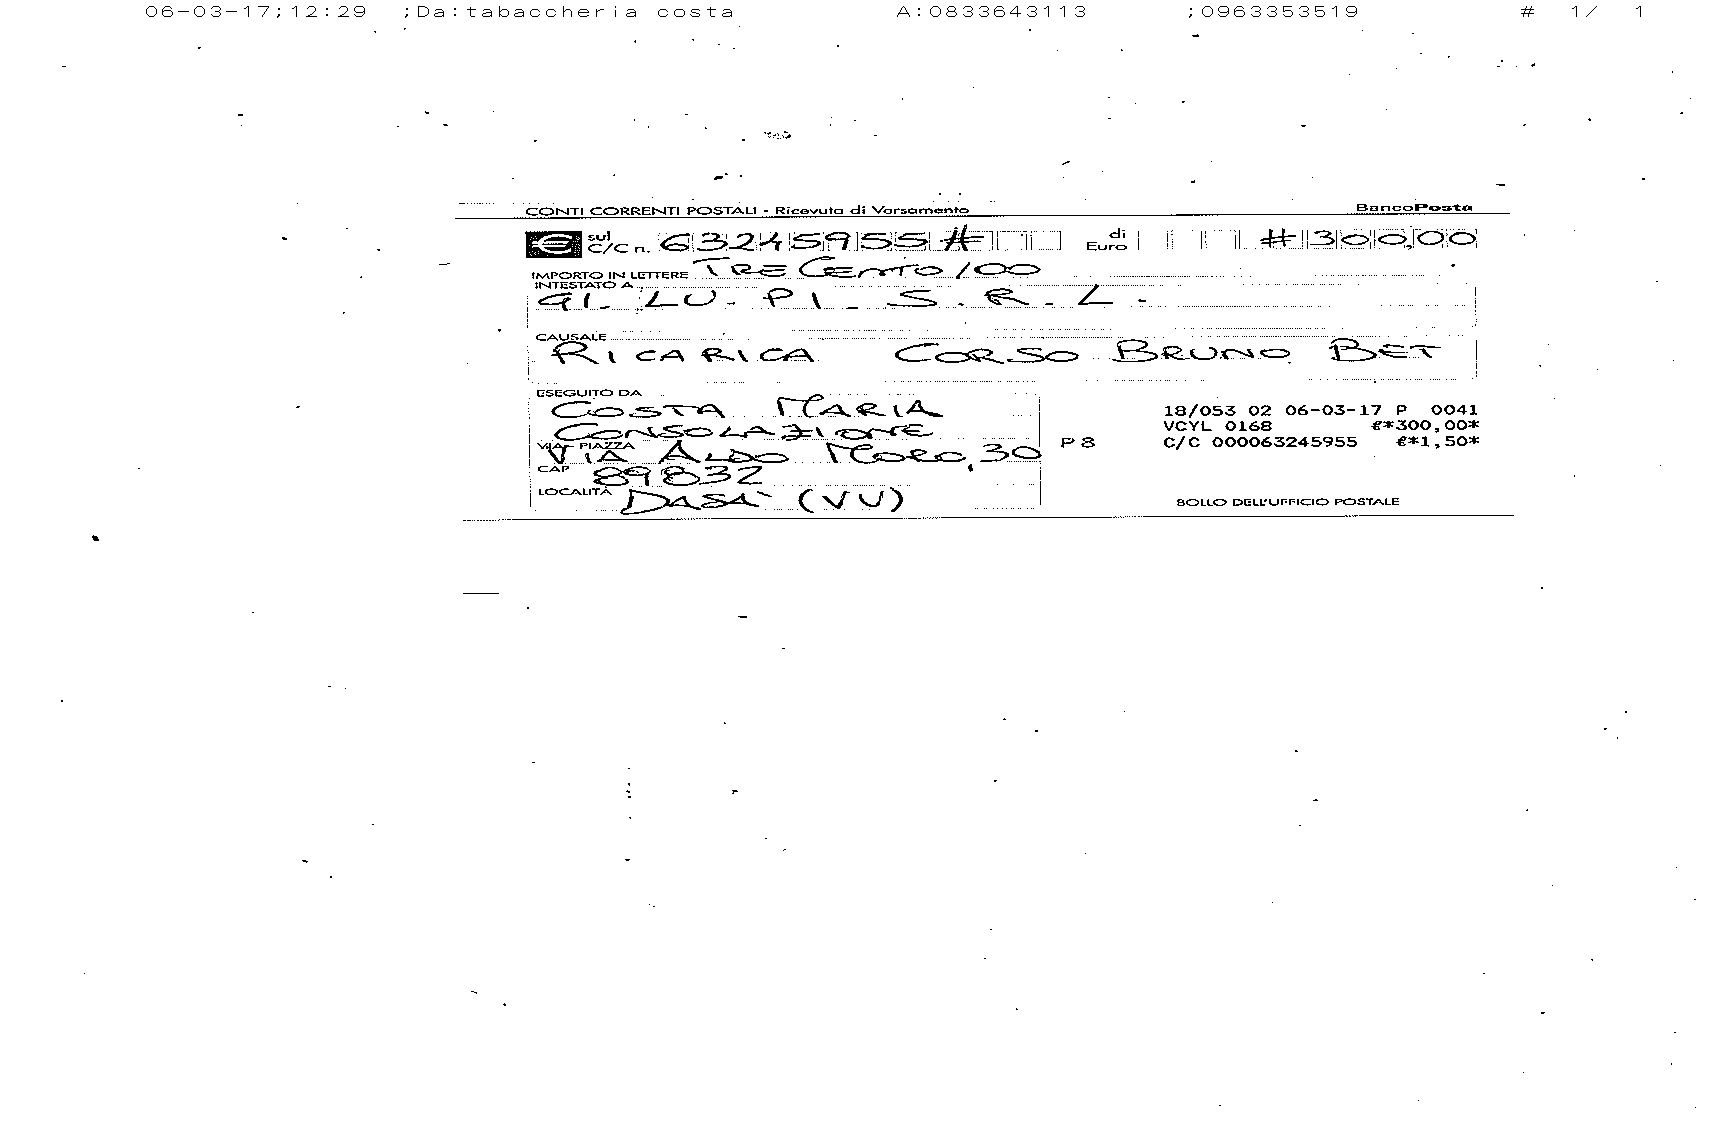 06-03-17;12:29 ;Da:tabaccheria costa A:0833643113 ;0963353519 # 1/ 1
CONTI CORRENTI POSTALI - Ricevuta di Versamento BancoPosta
€ sul C/C n. 63245955# di Euro #300,00
IMPORTO IN LETTERE TRECENTO/00
INTESTATO A
GI. LU. PI. S.R.L.
CAUSALE
RICARICA CORSO BRUNO BET
ESEGUITO DA
COSTA MARIA
CONSOLAZIONE
VIA - PIAZZA
VIA ALDO MORO, 30
CAP 89832
LOCALITÀ DASA' (VV)
18/053 02 06-03-17 P 0041
VCYL 0168 €*300,00*
P8 C/C 000063245955 €*1,50*
BOLLO DELL'UFFICIO POSTALE